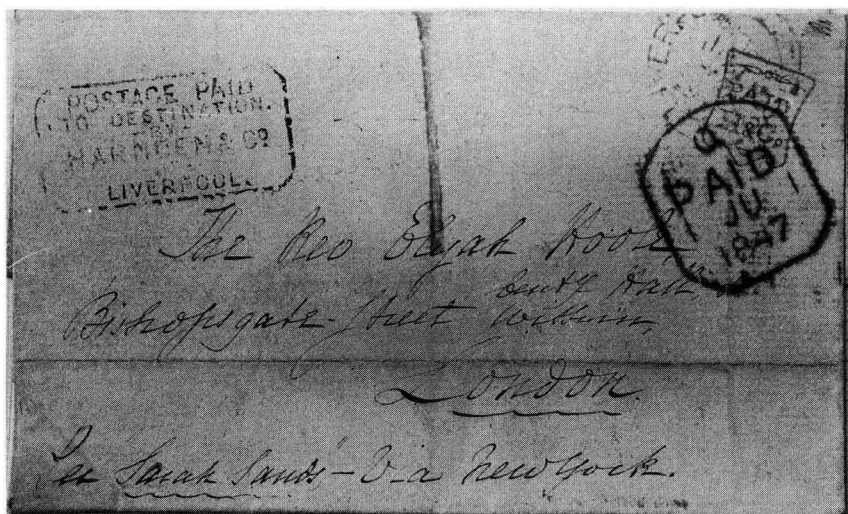 POSTAGE PAID
TO DESTINATION.
BY
HARNDEN & Co
LIVERPOOL.
PAID
& Co
9
PAID
JU
1847
The Rev Elijah Hoole,
Centy Hall
Bishopsgate Street Within,
London.
Per "Sarah Sands" - Via New York.